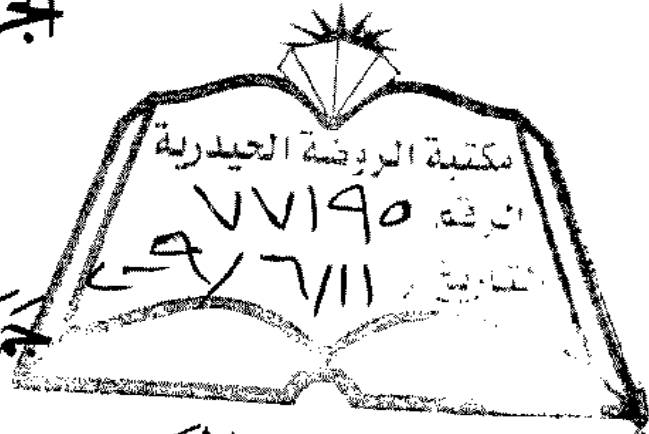 مكتبة الروضة الحيدرية
الرقم ٧٧١٩٥
التاريخ ١١/٦/٢٠٠٩